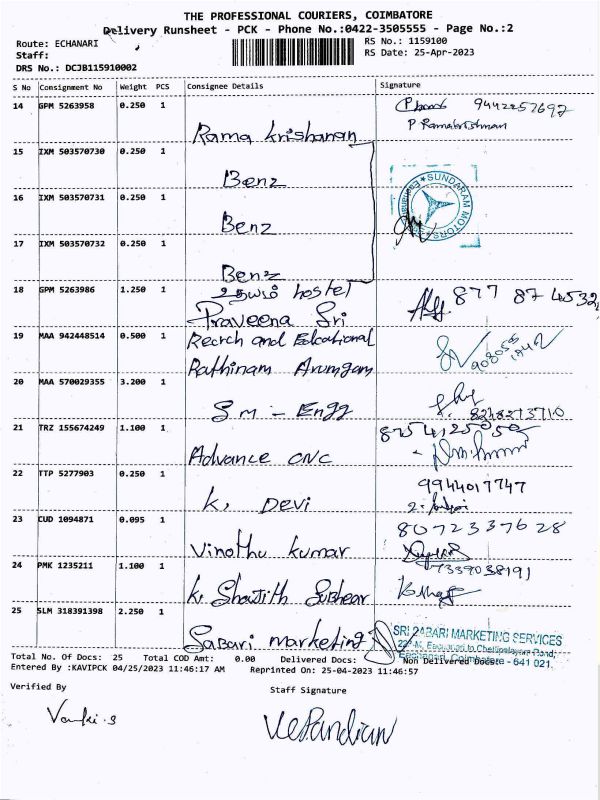 THE PROFESSIONAL COURIERS, COIMBATORE
Delivery Runsheet - PCK - Phone No.:0422-3505555 - Page No.:2
Route: ECHANARI
RS No.: 1159100
Staff:
RS Date: 25-Apr-2023
DRS No.: DCJB115910002
S No Consignment No Weight PCS Consignee Details Signature
14 GPM 5263958 0.250 1
Rama Krishanan
9442257692
P Ramakrishnan
15 IXM 503570730 0.250 1
Benz
16 IXM 503570731 0.250 1
Benz
SUNDARAM MOTORS
17 IXM 503570732 0.250 1
Benz
18 GPM 5263986 1.250 1
உதயம் hostel
Praveena Sri
877 87 4532
19 MAA 942448514 0.500 1
Reorch and Edcational
Rathinam Arumgam
20 MAA 570029355 3.200 1
S m - Engg
8248273710
21 TRZ 155674249 1.100 1
Advance CNC
8754125052
22 TTP 5277903 0.250 1
K. Devi
9944017747
23 CUD 1094871 0.095 1
Vinothu Kumar
8072337628
24 PMK 1235211 1.100 1
7339038191
25 SLM 318391398 2.250 1
Sabari Marketing
SRI SABARI MARKETING SERVICES
Eachanari, Coimbatore - 641 021.
Total No. Of Docs: 25 Total COD Amt: 0.00 Delivered Docs: Non Delivered Docs:
Entered By :KAVIPCK 04/25/2023 11:46:17 AM Reprinted On: 25-04-2023 11:46:57
Verified By
Staff Signature